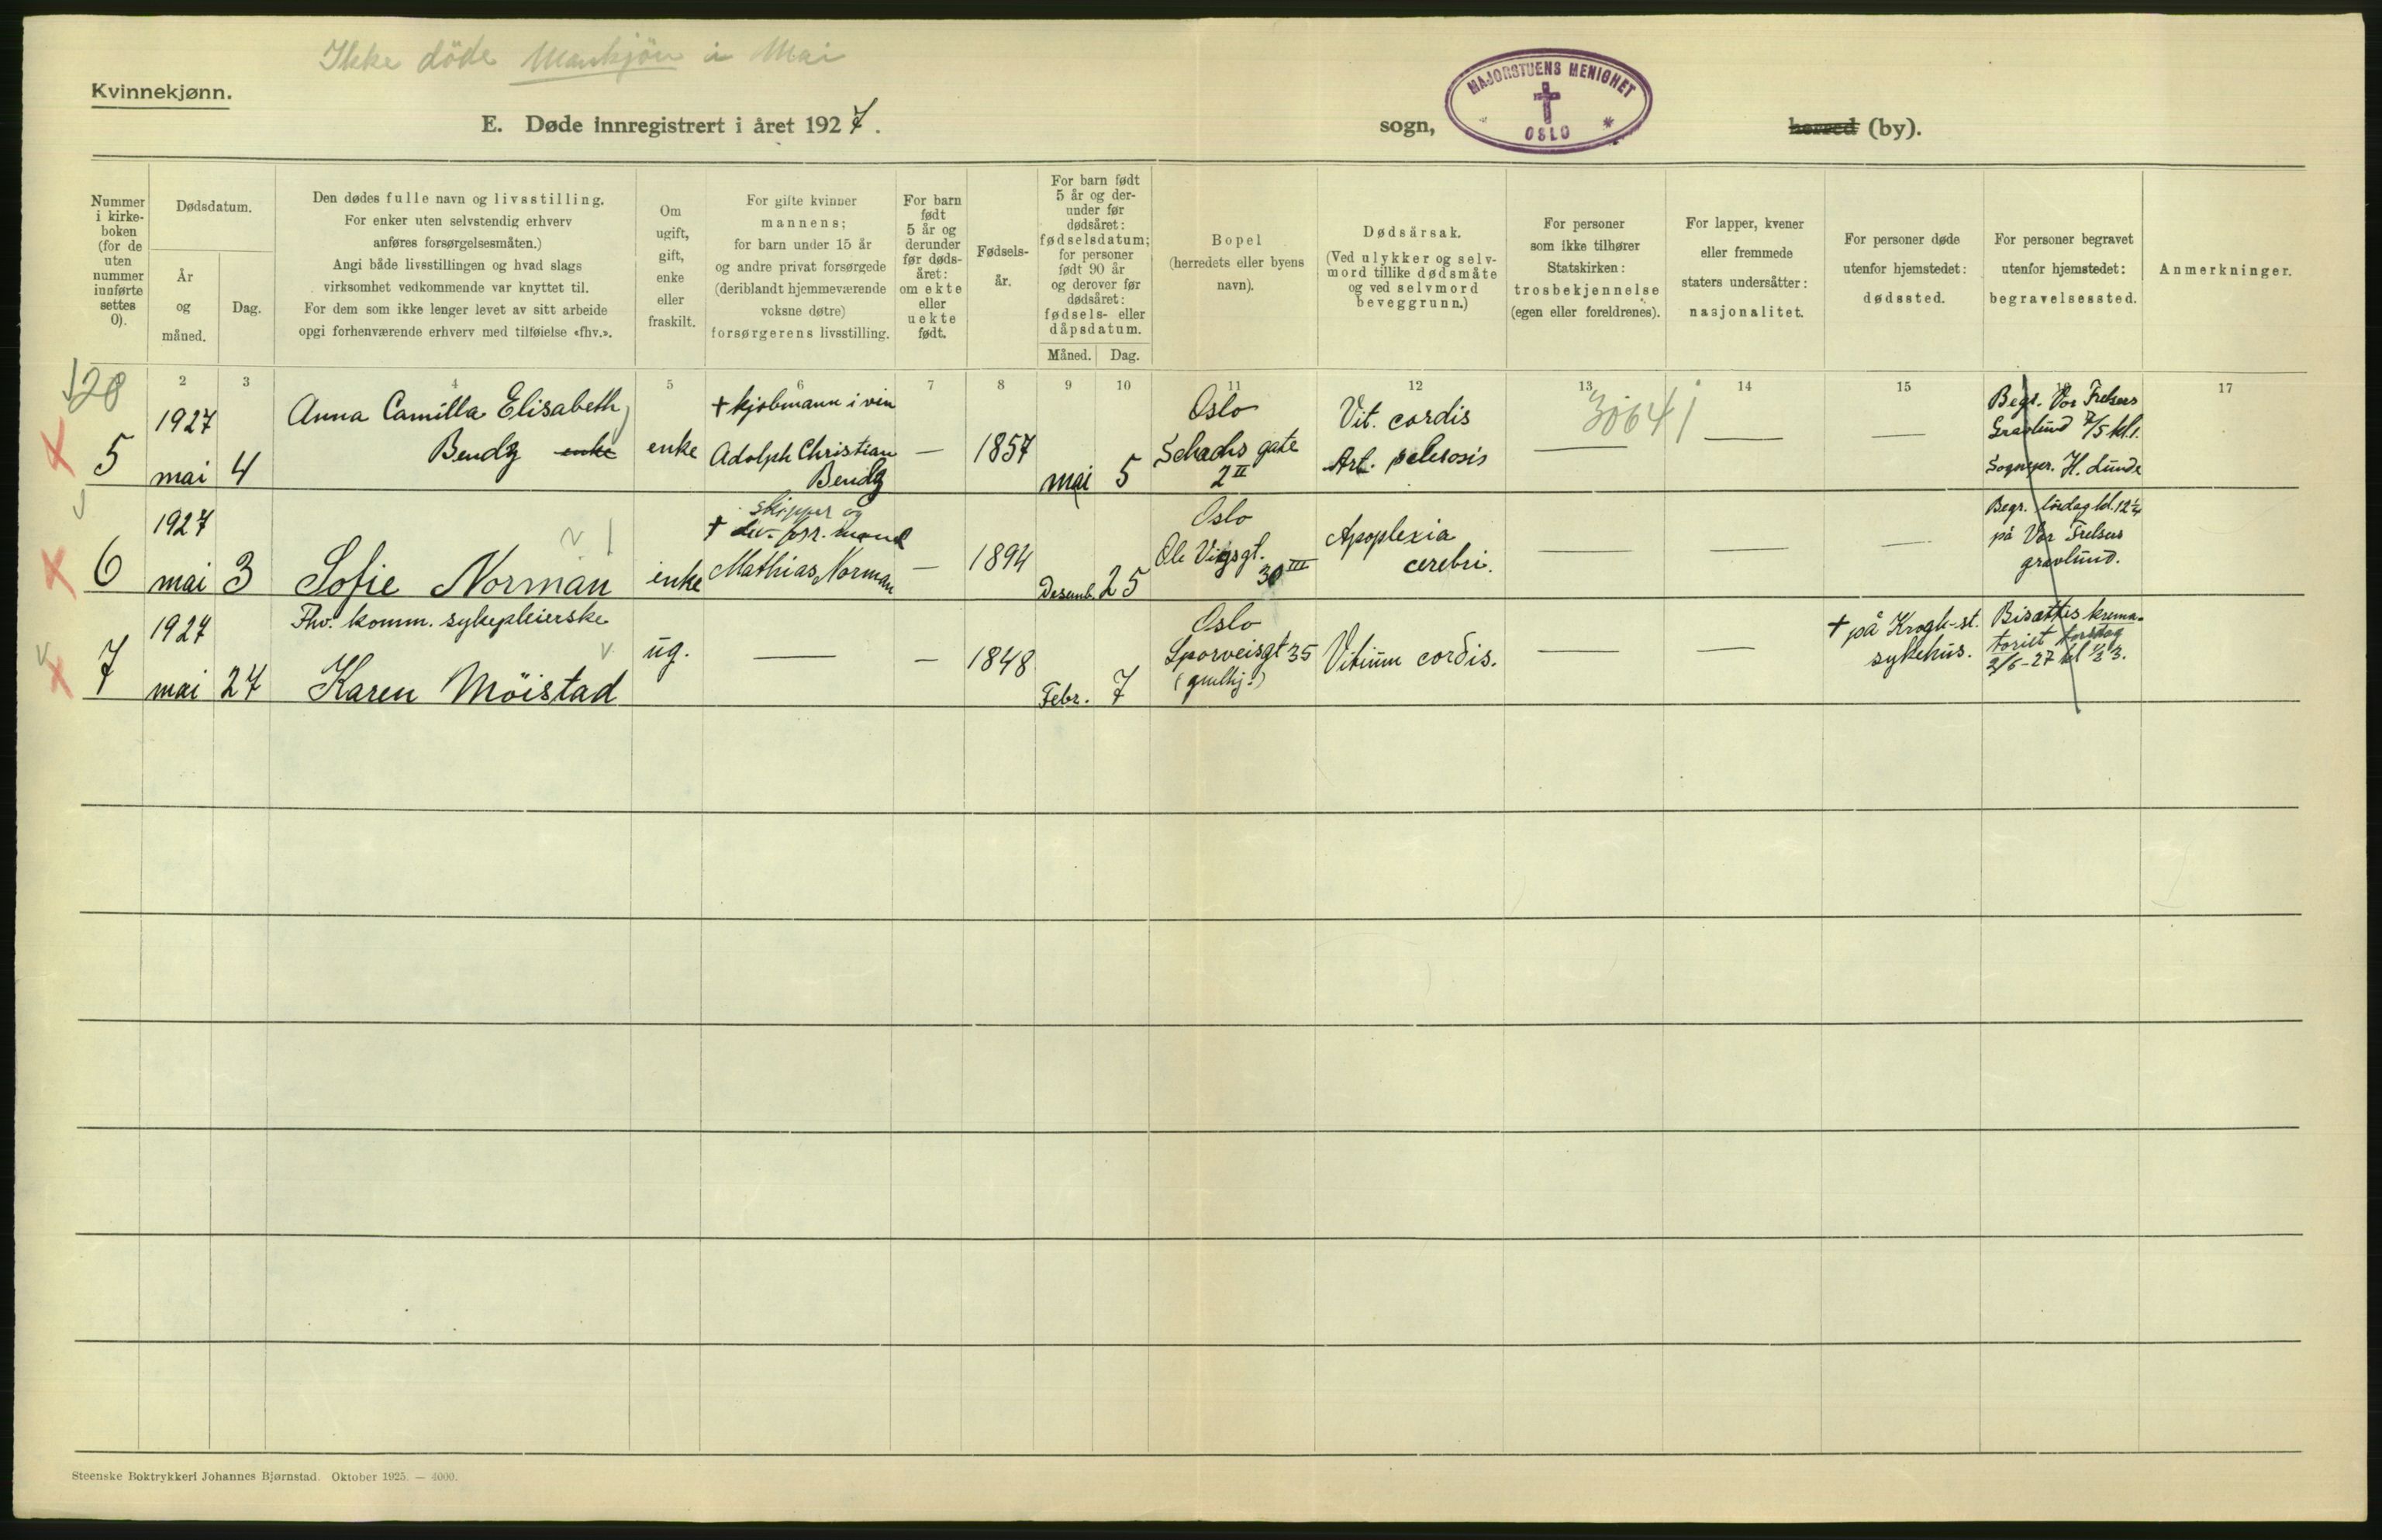 Ikke döde Mankjön i Mai
Kvinnekjønn.
E. Døde innregistrert i året 1927.
sogn,
MAJORSTUENS MENIGHET
OSLO
herred (by).
Nummer i kirke-boken (for de uten nummer innførte settes 0).
Dødsdatum.
År og måned.
Dag.
Den dødes fulle navn og livsstilling.
For enker uten selvstendig erhverv
anføres forsørgelsesmåten.)
Angi både livsstillingen og hvad slags
virksomhet vedkommende var knyttet til.
For dem som ikke lenger levet av sitt arbeide
opgi forhenværende erhverv med tilføielse «fhv.».
Om ugift, gift, enke eller fraskilt.
For gifte kvinner
mannens;
for barn under 15 år
og andre privat forsørgede
(deriblandt hjemmeværende
voksne døtre)
forsørgerens livsstilling.
For barn født 5 år og derunder før døds-året: om ekte eller uekte født.
Fødsels-år.
For barn født
5 år og der-
under før
dødsåret:
fødselsdatum;
for personer
født 90 år
og derover før
dødsåret:
fødsels- eller
dåpsdatum.
Måned.
Dag.
Bopel
(herredets eller byens
navn).
Dødsårsak.
(Ved ulykker og selv-
mord tillike dødsmåte
og ved selvmord
beveggrunn.)
For personer
som ikke tilhører
Statskirken:
trosbekjennelse
(egen eller foreldrenes).
For lapper, kvener
eller fremmede
staters undersåtter:
nasjonalitet.
For personer døde
utenfor hjemstedet:
dødssted.
For personer begravet
utenfor hjemstedet:
begravelsessted.
Anmerkninger.
2 3 4 5 6 7 8 9 10 11 12 13 14 15 17
5
1927
mai 4
Anna Camilla Elisabeth
Bendz enke
enke
+ kjøbmann i vin
Adolph Christian
Bendz
—
1857
mai 5
Oslo
Schachs gate
2 II
Vit. cordis
Art. sclerosis
30641
—
—
—
Begr. Vor Frelsers
Gravlund 7/5 kl. 1.
Sognepr. H. Lunde
6
1927
mai 3
Sofie Norman
enke
skipper og
Mathias Norman
—
1894
Desemb. 25
Oslo
Ole Vigsgt.
30 III
Apoplexia
cerebri.
—
—
—
Begr. lördag kl. 12 1/4
på Vor Frelsers
gravlund.
7
1927
mai 27
Fhv. komm. sykepleierske
Karen Möistad
ug.
—
—
1848
Febr. 7
Oslo
Sporveisgt 35
Vitium cordis.
—
—
+ på Krogh-st.
sykehus.
Bisættes krema-
toriet torsdag
2/6-27 kl 1/2 3.
Steenske Boktrykkeri Johannes Bjørnstad. Oktober 1925. — 4000.